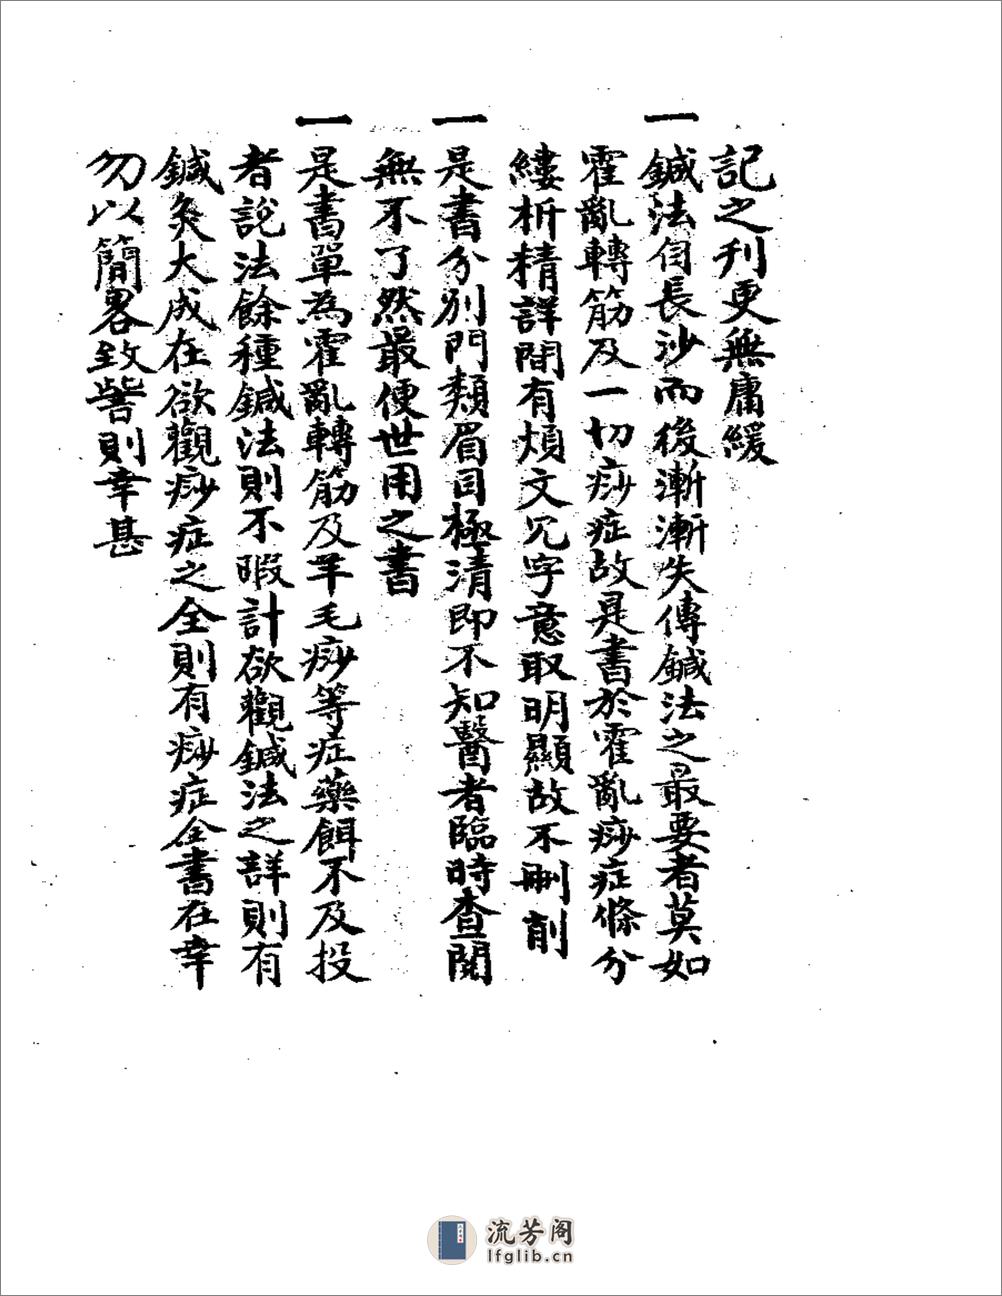 記之刋更無庸緩
一鍼法自長沙而後漸漸失傳鍼法之最要者莫如
霍亂轉筋及一切痧症故是書於霍亂痧症條分
縷析精詳間有煩文冗字意取明顯故不刪削
一是書分別門類眉目極清即不知醫者臨時查閱
無不了然最便世用之書
一是書單為霍亂轉筋及羊毛痧等症藥餌不及投
者說法餘種鍼法則不暇計欲觀鍼法之詳則有
鍼灸大成在欲觀痧症之全則有痧症全書在幸
勿以簡畧致訾則幸甚
流芳阁
lfglib.cn